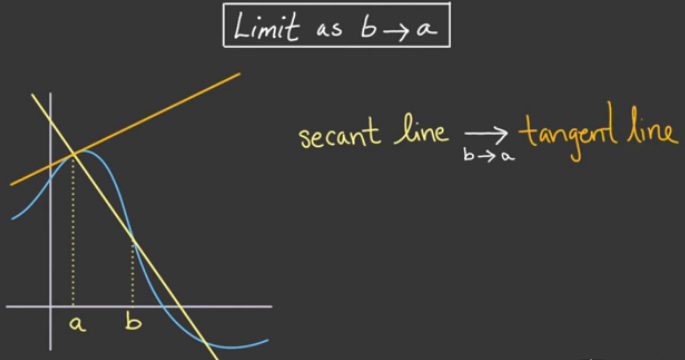 Limit as b → a
secant line → tangent line
b → a
a
b